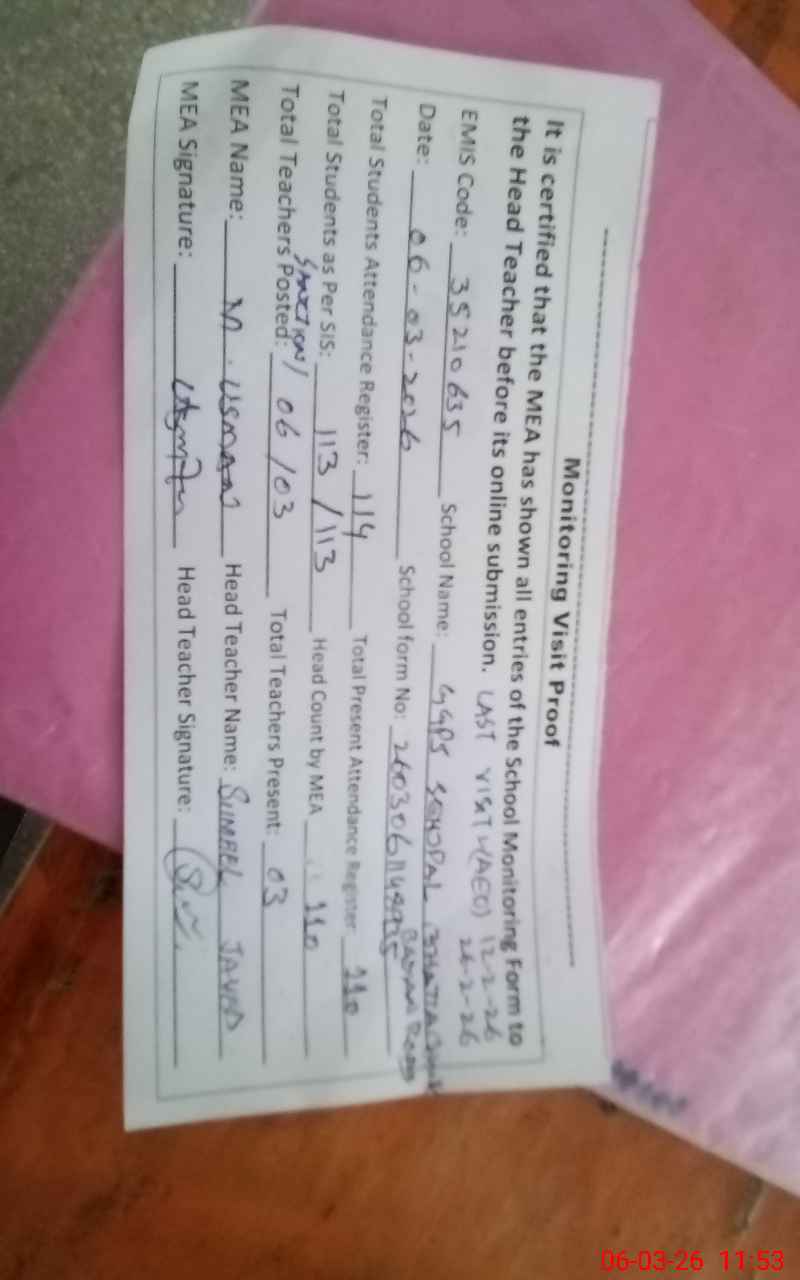 Monitoring Visit Proof
It is certified that the MEA has shown all entries of the School Monitoring Form to
the Head Teacher before its online submission. LAST VISIT (AEO) 12-2-26
26-2-26
EMIS Code: 35210635 School Name: GGPS
Date: 06-03-2026 School form No:
Total Students Attendance Register: 114 Total Present Attendance Register 110
Total Students as Per SIS: 113/113 Head Count by MEA 110
SANCTION/
Total Teachers Posted: 06/03 Total Teachers Present: 03
MEA Name: M. USMAN Head Teacher Name: SUMBEL JAVED
MEA Signature: Head Teacher Signature:
06-03-26 11:53